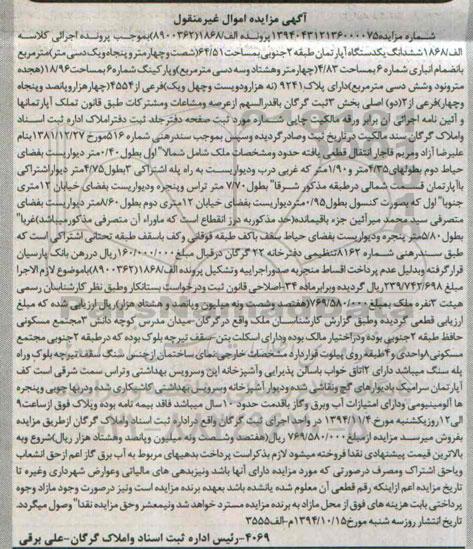 آگهی مزایده اموال غیرمنقول
شماره مزایده۱۳۹۴۰۴۳۱۲۱۳۶۰۰۰۰۷۵ پرونده الف/۱۸۶۸(۸۹۰۰۳۶۲)بموجب پرونده اجرائی کلاسه
الف/۱۸۶۸ششدانگ یکدستگاه آپارتمان طبقه ۲جنوبی بمساحت۶۴/۵۱(شصت وچهارمتر و پنجاه ویک دسی متر)مترمربع
بانضمام انباری شماره ۶ بمساحت ۴/۸۳(چهارمتروهشتاد وسه دسی مترمربع)وپارکینگ شماره ۶ بمساحت۱۸/۹۶(هجده
مترونود وشش دسی مترمربع)دارای پلاک ۹۲۴۱ (نه هزارودویست وچهل ویک)فرعی از۴۵۵۴(چهارهزاروپانصد وپنجاه
وچهار)فرعی از۲(دو) اصلی بخش ۳ثبت گرگان باقدرالسهم ازعرصه ومشاعات ومشترکات طبق قانون تملک آپارتمانها
و آئین نامه اجرائی آن برابر ورقه مالکیت چاپی شماره مورد ثبت صفحه دفترجلد ثبت دفتراملاک اداره ثبت اسناد
واملاک گرگان سند مالکیت درتاریخ ثبت وصادر گردیده وسپس بموجب سندرهنی شماره ۵۱۶مورخ ۱۳۸۱/۱۲/۲۷بنام
علیرضا آزاد ومریم قاجار انتقال قطعی یافته حدود ومشخصات ملک شمالا" اول بطول ۰/۴۰متر دیواریست بفضای
حیاط دوم بطولهای ۴/۳۵متر و۱/۹۰متر که غربی درب ودیواریست به راه پله اشتراکی ۳بطول۴/۷۵متر دیواراشتراکی
باآپارتمان قسمت شمالی درطبقه مذکور شرقا" بطول ۷/۷۰ متر تراس وپنجره ودیواریست بفضای خیابان ۱۲متری
جنوبا" اول که بصورت کنسول بطول۰/۹۵متردیواریست بفضای خیابان ۱۲متری دوم بطول ۸/۶۰متر دیواریست بفضای
متصرفی سید محمد میرآئین جزء باقیمانده(حد مذکوربه درز انقطاع است که ماوراء آن متصرفی مذکورمیباشد)غربا"
بطول ۵/۸۰متر پنجره ودیواریست بفضای حیاط سقف باکف طبقه فوقانی وکف باسقف طبقه تحتانی اشتراکی است که
طبق سندرهنی شماره ۸۱۶۲تنظیمی دفترخانه ۲۲ گرگان درقبال مبلغ ۱۶۰/۰۰۰/۰۰۰ریال دررهن بانک پارسیان
قرارگرفته وبدلیل عدم پرداخت اقساط منجربه صدوراجراییه وتشکیل پرونده الف/۱۸۶۸(۸۹۰۰۳۶۲)باموضوع لازم الاجرا
مبلغ ۲۳۹/۷۴۲/۶۹۸ ریال گردیده وبرابرماده ۳۴-اصلاحی قانون ثبت ودرخواست بستانکار وطبق نظر کارشناسان رسمی
هیئت ۳نفره ملک بمبلغ۷۶۹/۵۸۰/۰۰۰(هفتصد وشصت ونه میلیون وپانصد وهشتاد هزار)ریال ارزیابی شده که مبلغ
ارزیابی قطعی گردیده وطبق گزارش کارشناسان ملک واقع درگرگان-میدان مدرس کوچه دانش ۳مجتمع مسکونی
حافظ طبقه ۲جنوبی بوده ودراختیار مالک بوده ودارای اسکلت بتن-سقف تیرچه بلوک بوده که درطبقه ۲جنوبی مجتمع
مسکونی ۸واحدی و۴طبقه روی پیلوت قراردارد مشخصات خارجی نمای ساختمان ازجنس سنگ سقف تیرچه بلوک وراه
پله سنگ میباشد دارای ۲اتاق خواب باسالن پذیرایی وآشپزخانه اپن وسرویس بهداشتی وتراس سمت شرقی است کف
آپارتمان سرامیک بادیوارهای گچ ونقاشی شده ودیوار آشپزخانه وسرویس بهداشتی کاشیکاری شده ودربها چوبی وپنجره
ها آلومینیومی ودارای امتیازات آب وبرق وگاز باقدمت حدود ۱۰سال میباشد فاقد بیمه نامه بوده وپلاک فوق ازساعت۹
الی ۱۲ روزیکشنبه مورخ ۱۳۹۴/۱۱/۴ در واحد اجرای ثبت گرگان واقع دراداره ثبت اسناد واملاک گرگان ازطریق مزایده
بفروش میرسد مزایده از مبلغ ۷۶۹/۵۸۰/۰۰۰ ریال(هفتصد وشصت ونه میلیون وپانصد وهشتاد هزار ریال)شروع وبه
بالاترین قیمت پیشنهادی نقدا فروخته میشود لازم بذکراست پرداخت بدهیهای مربوط به آب برق گاز اعم ازحق انشعاب
ویاحق اشتراک ومصرف درصورتی که مورد مزایده دارای آنها باشد ونیزبدهی های مالیاتی وعوارض شهرداری وغیره تا
تاریخ مزایده اعم ازاینکه رقم قطعی آن معلوم شده یانشده باشد بعهده برنده مزایده است ونیز درصورت وجود مازاد وجوه
پرداختی بابت هزینه های فوق از محل مازاد به برنده مزایده مسترد خواهد شد ونیمعشر وحق مزایده نقدا" وصول میگردد.
تاریخ انتشار روزسه شنبه مورخ۱۳۹۴/۱۰/۱۵م-الف۳۵۵۵
۴۰۶۹-رئیس اداره ثبت اسناد واملاک گرگان-علی برقی